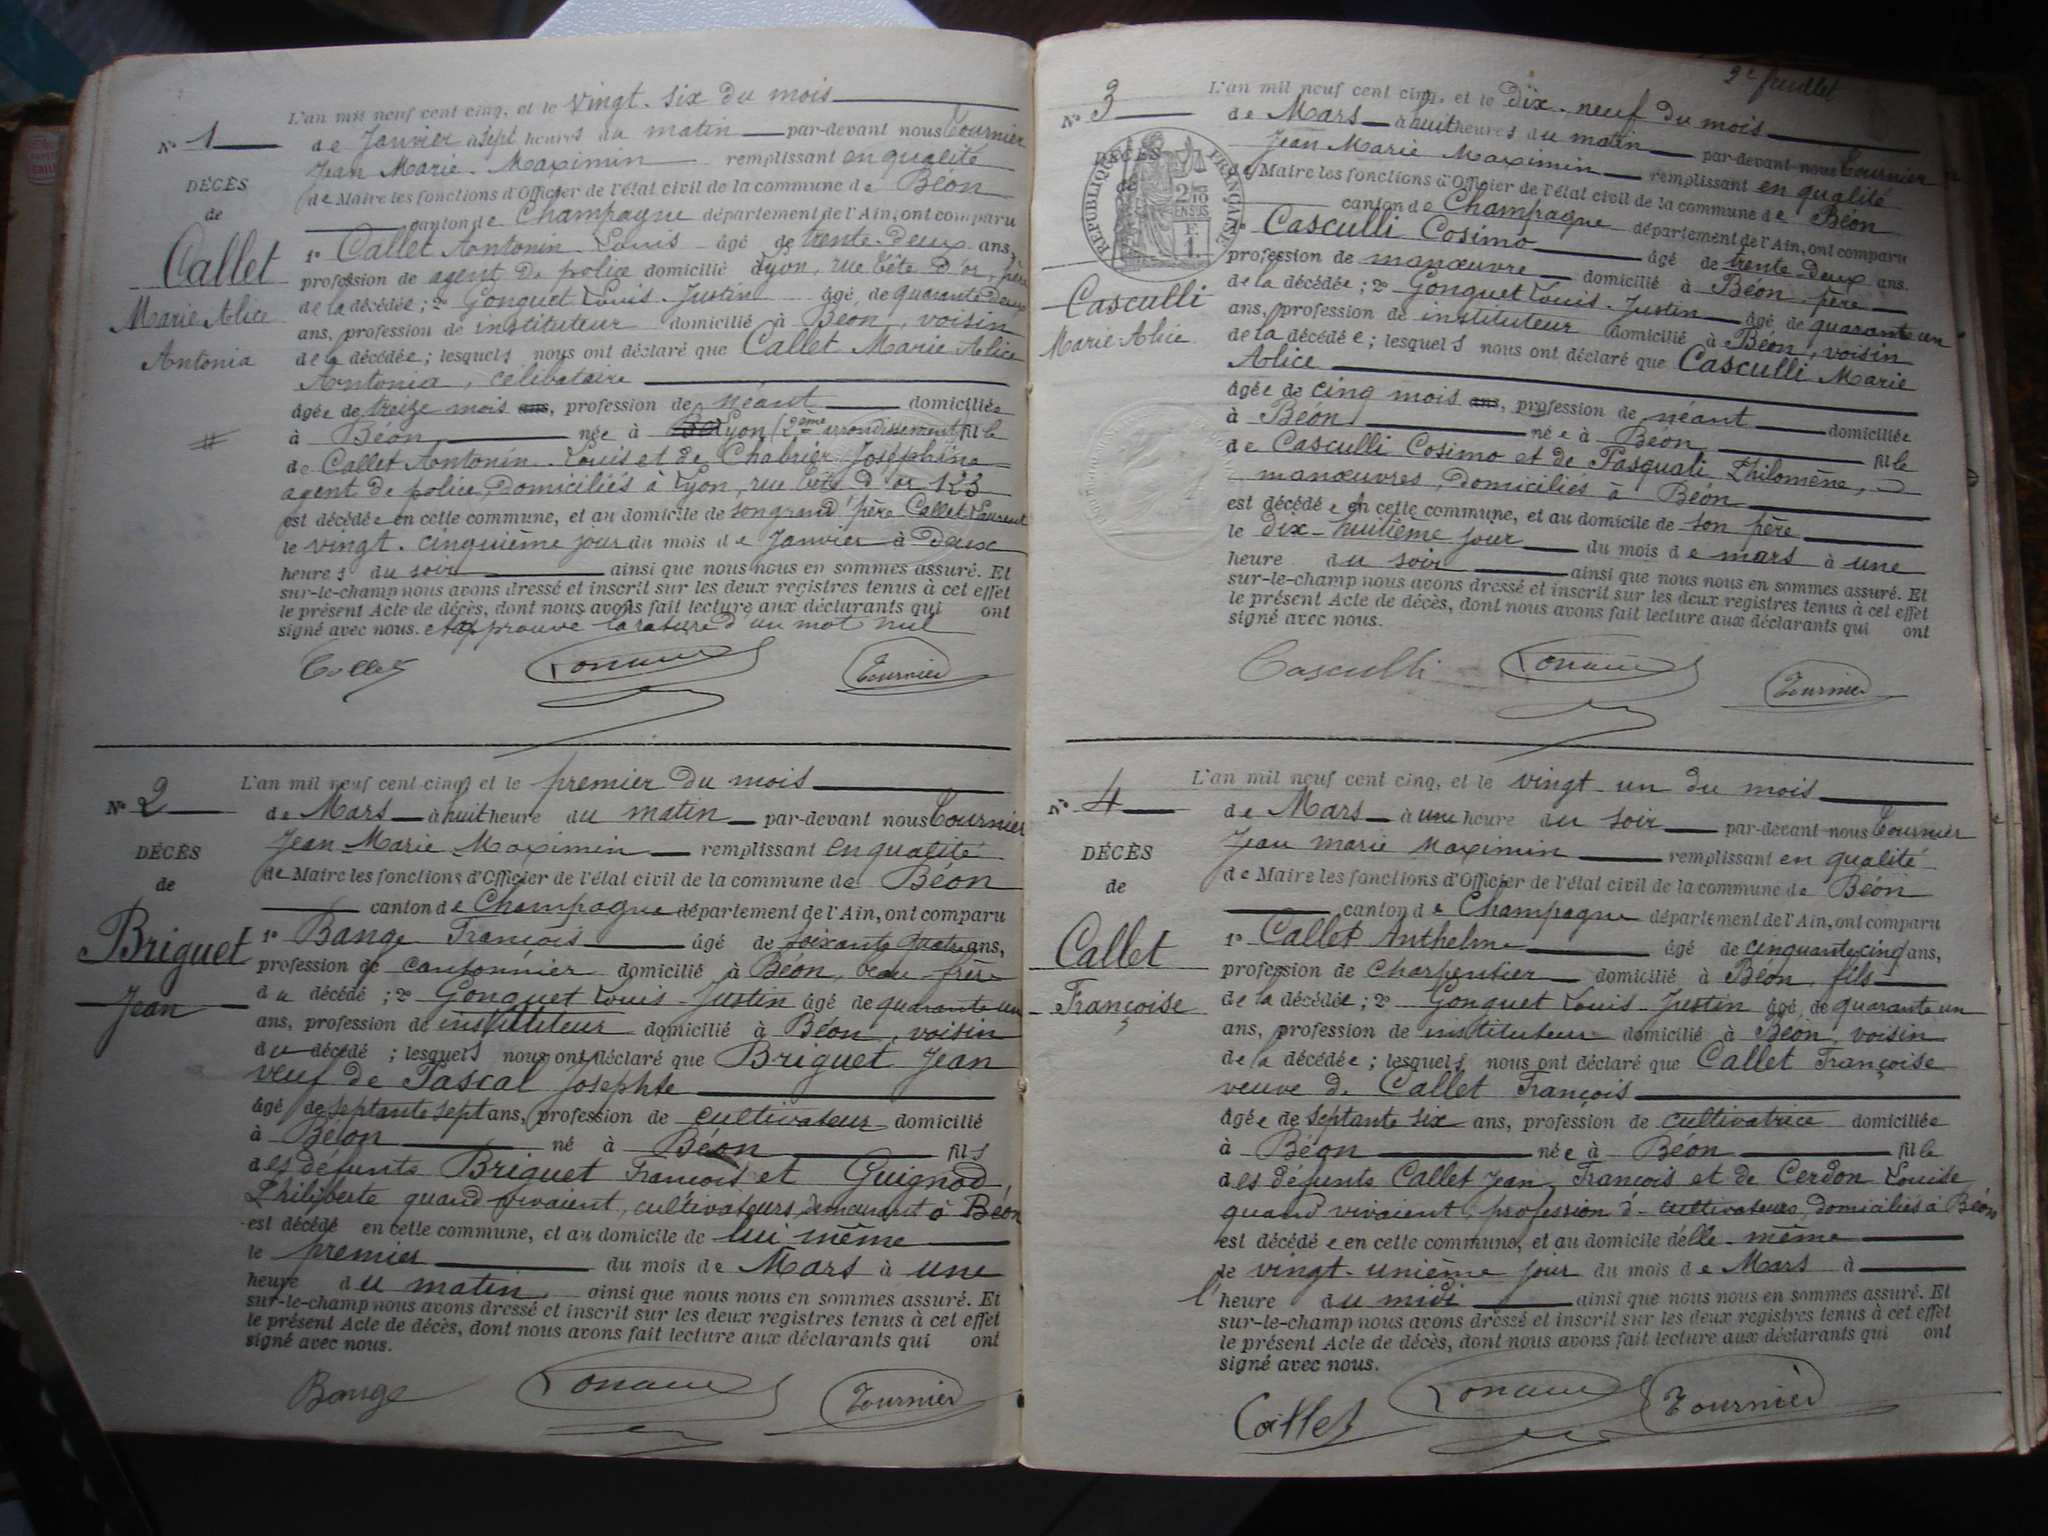 L'an mil neuf cent cinq, et le vingt-six du mois
N° 1
de Janvier à sept heures du matin par-devant nous Tournier
Jean Marie Maximin remplissant en qualité
DÉCÈS
de Maire les fonctions d'Officier de l'état civil de la commune de Béon
de
canton de Champagne département de l'Ain, ont comparu
Callet
1° Callet Antonin Louis âgé de trente-deux ans,
profession de agent de police domicilié Lyon, rue Tête d'or, père
Marie Alice
de la décédée; 2° Gonguet Louis-Justin âgé de quarante deux
ans, profession de instituteur domicilié à Béon, voisin
Antonia
de la décédée; lesquels nous ont déclaré que Callet Marie Alice
Antonia, célibataire
âgée de treize mois ans, profession de néant domiciliée
à Béon née à Lyon (2ème arrondissement) fille
de Callet Antonin Louis et de Chabrier Joséphine
agent de police, domiciliés à Lyon, rue Tête d'or 123
est décédée en cette commune, et au domicile de son grand'père Callet Laurent
le vingt-cinquième jour du mois de Janvier à deux
heures du soir ainsi que nous nous en sommes assuré. Et
sur-le-champ nous avons dressé et inscrit sur les deux registres tenus à cet effet
le présent Acte de décès, dont nous avons fait lecture aux déclarants qui ont
signé avec nous. et approuvé la rature d'un mot nul
Callet Tournier
L'an mil neuf cent cinq, et le premier du mois
N° 2
de Mars à huit heure du matin par-devant nous Tournier
Jean Marie Maximin remplissant en qualité
DÉCÈS
de Maire les fonctions d'Officier de l'état civil de la commune de Béon
de
canton de Champagne département de l'Ain, ont comparu
Briguet
1° Bange François âgé de soixante quatre ans,
profession de cantonnier domicilié à Béon, beau-frère
Jean
du décédé; 2° Gonguet Louis-Justin âgé de quarante un
ans, profession de instituteur domicilié à Béon, voisin
du décédé; lesquels nous ont déclaré que Briguet Jean
veuf de Pascal Josephte
âgé de septante sept ans, profession de cultivateur domicilié
à Béon né à Béon fils
des défunts Briguet François et Guignod
Philiberte quand vivaient, cultivateurs, demeurant à Béon
est décédé en cette commune, et au domicile de lui même
le premier du mois de Mars à une
heure du matin ainsi que nous nous en sommes assuré. Et
sur-le-champ nous avons dressé et inscrit sur les deux registres tenus à cet effet
le présent Acte de décès, dont nous avons fait lecture aux déclarants qui ont
signé avec nous.
Bange Tournier
2e feuillet
L'an mil neuf cent cinq, et le dix-neuf du mois
N° 3
de Mars à huit heures du matin par-devant nous Tournier
Jean Marie Maximin remplissant en qualité
DÉCÈS
de
RÉPUBLIQUE FRANÇAISE
de Maire les fonctions d'Officier de l'état civil de la commune de Béon
canton de Champagne département de l'Ain, ont comparu
1° Casculli Cosimo âgé de trente deux ans.
profession de manœuvre domicilié à Béon, père
Casculli
de la décédée; 2° Gonguet Louis-Justin âgé de quarante un
Marie Alice
ans, profession de instituteur domicilié à Béon, voisin
de la décédée; lesquels nous ont déclaré que Casculli Marie
Alice
âgée de cinq mois ans, profession de néant domiciliée
à Béon née à Béon fille
de Casculli Cosimo et de Pasquali Philomène,
manœuvres, domiciliés à Béon
est décédée en cette commune, et au domicile de son père
le dix-huitième jour du mois de mars à une
heure du soir ainsi que nous nous en sommes assuré. Et
sur-le-champ nous avons dressé et inscrit sur les deux registres tenus à cet effet
le présent Acte de décès, dont nous avons fait lecture aux déclarants qui ont
signé avec nous.
Casculli Tournier
L'an mil neuf cent cinq, et le vingt-un du mois
N° 4
de Mars à une heure du soir par-devant nous Tournier
Jean marie Maximin remplissant en qualité
DÉCÈS
de Maire les fonctions d'Officier de l'état civil de la commune de Béon
de
canton de Champagne département de l'Ain, ont comparu
Callet
1° Callet Anthelme âgé de cinquante cinq ans,
profession de Charpentier domicilié à Béon, fils
Françoise
de la décédée; 2° Gonguet Louis-Justin âgé de quarante un
ans, profession de instituteur domicilié à Béon, voisin
de la décédée; lesquels nous ont déclaré que Callet Françoise
veuve de Callet François
âgée de septante six ans, profession de cultivatrice domiciliée
à Béon née à Béon fille
des défunts Callet Jean François et de Cerdon Louise
quand vivaient, profession de cultivateurs, domiciliés à Béon
est décédée en cette commune, et au domicile d'elle-même
le vingt-unième jour du mois de Mars à
l'heure du midi ainsi que nous nous en sommes assuré. Et
sur-le-champ nous avons dressé et inscrit sur les deux registres tenus à cet effet
le présent Acte de décès, dont nous avons fait lecture aux déclarants qui ont
signé avec nous.
Callet Tournier